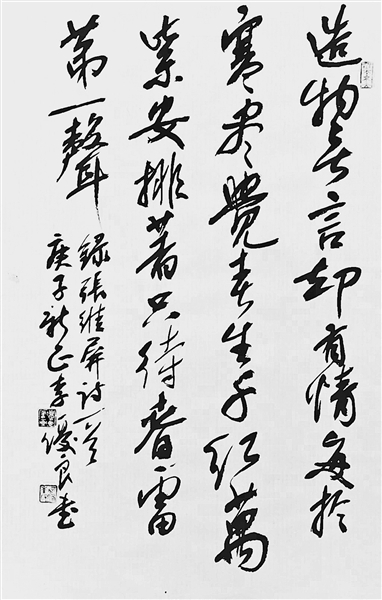 造物无言却有情每於
寒尽覺春生千红萬
紫安排著只待春雷
第一聲
録張維屏詩一首
庚子新正李優良书